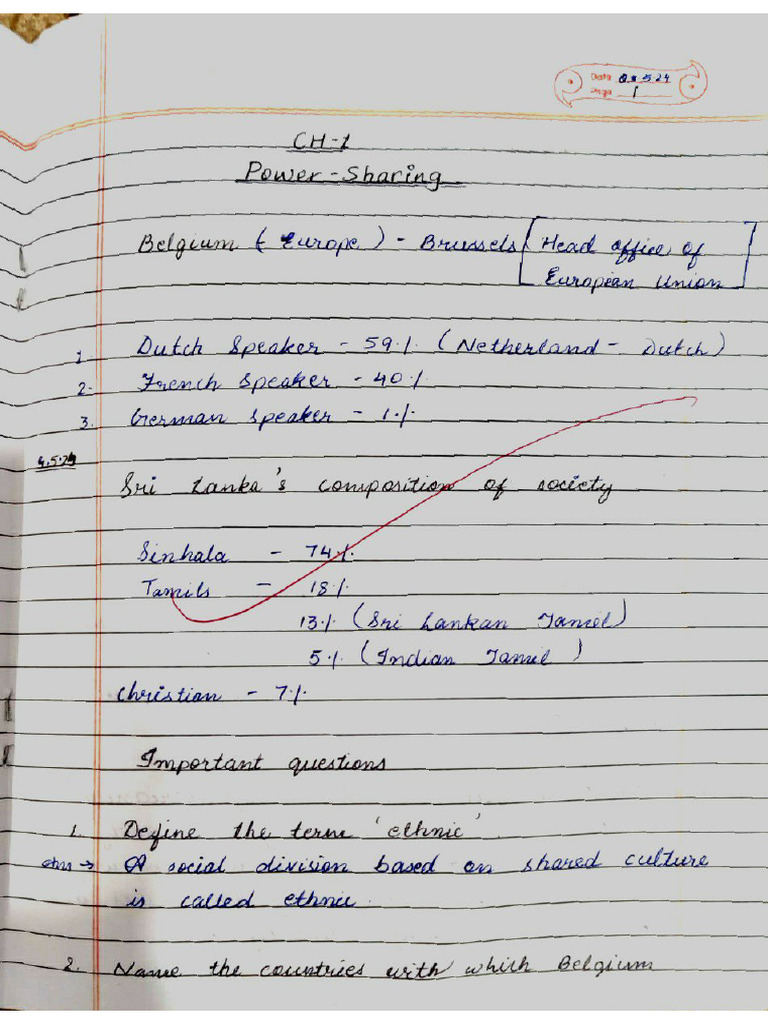 Date 5.24
Page 1
CH-1
Power-Sharing
Belgium (Europe) - Brussels [Head office of
European Union]
1. Dutch Speaker - 59% (Netherland - Dutch)
2. French Speaker - 40%
3. German Speaker - 1%
Sri Lanka's composition of society
Sinhala - 74%
Tamils - 18%
13% (Sri Lankan Tamil)
5% (Indian Tamil)
Christian - 7%
Important questions
1. Define the term 'ethnic'.
Ans → A social division based on shared culture
is called ethnic.
2. Name the countries with which Belgium